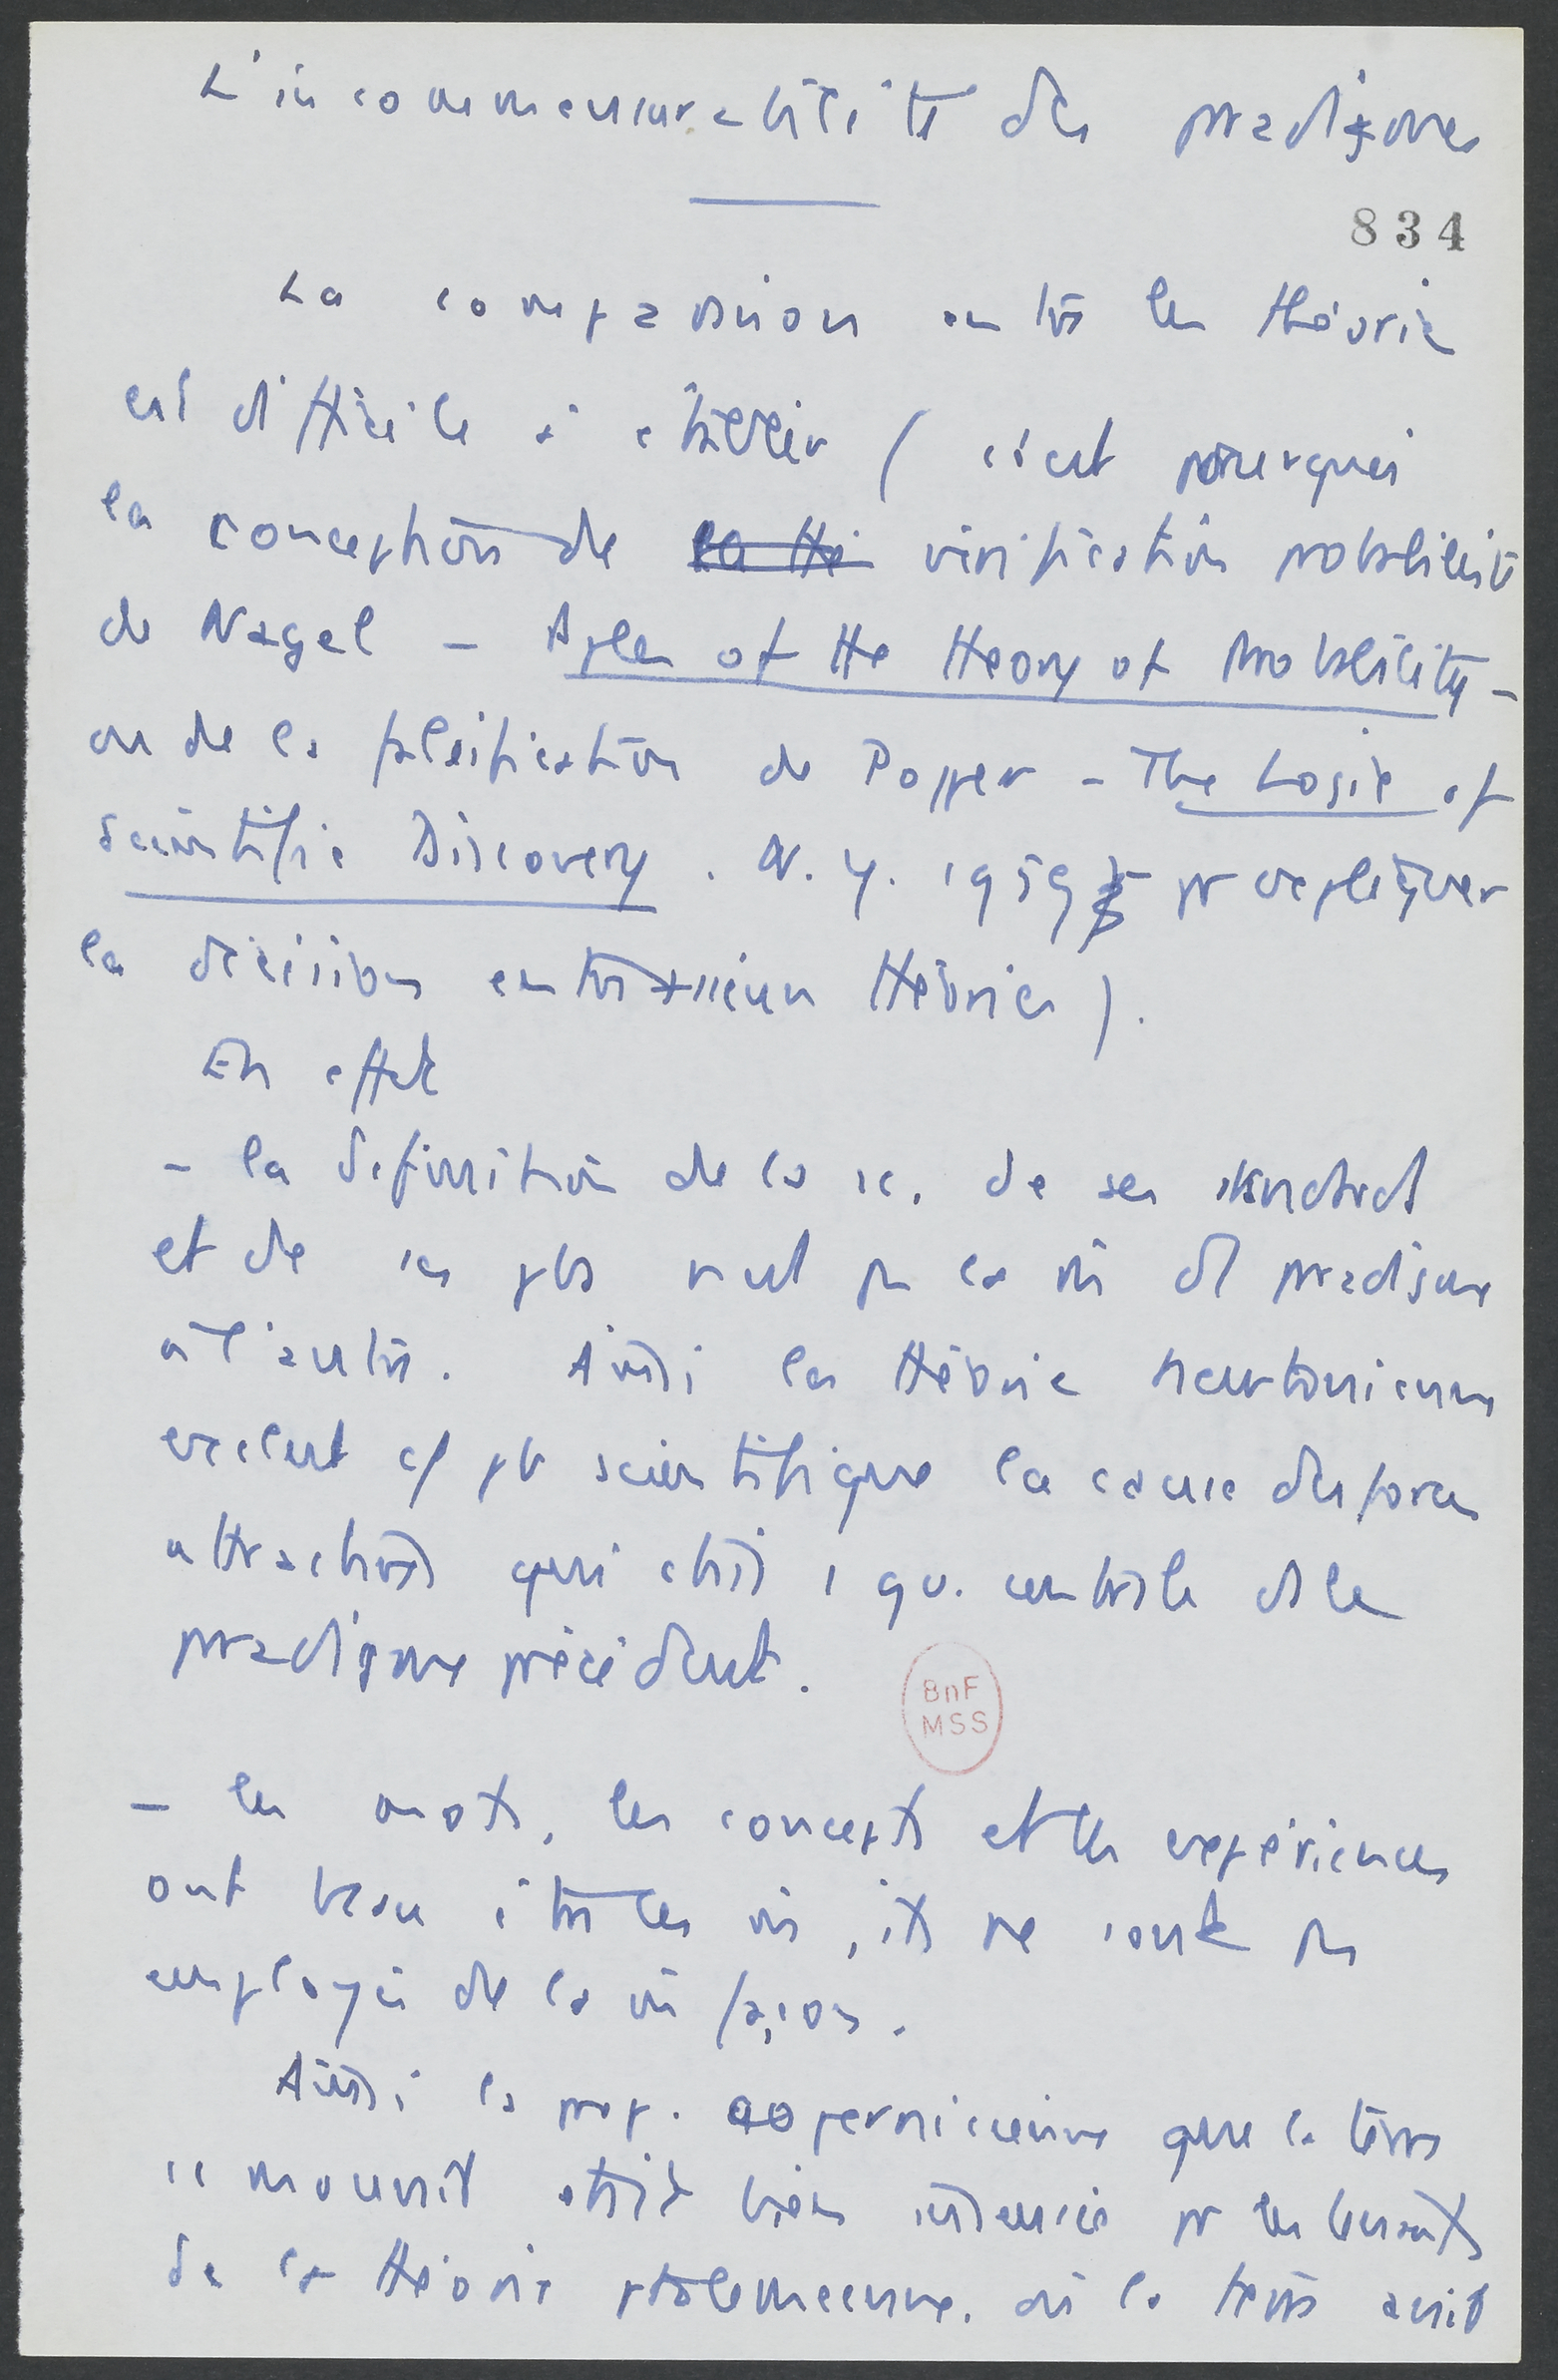 L'incommensurabilité des paradigmes
834
La comparaison entre les théories
est difficile à établir (c'est pourquoi
la conception de la thé vérification probabiliste
de Nagel - Ples of the theory of Probability -
ou de la falsification de Popper - The Logic of
scientific Discovery. N.Y. 1959 pr expliquer
la décision entre plusieurs théories).
En effet
- la définition de la sc. de ses standards
et de ses pbs n'est pas la m̂ d'1 paradigme
à l'autre. Ainsi la théorie newtonienne
exclut c/ pb scientifique la cause des forces
attractives qui était 1 qu. centrale ds le
paradigme précédent.
BnF
MSS
- les mots, les concepts et les expériences
ont beau être les m̂, ils ne sont pas
employés de la m̂ façon.
Ainsi la prop. copernicienne que la terre
se mouvait était bien insensée pr les tenants
de la théorie ptolemeenne. où la terre avait